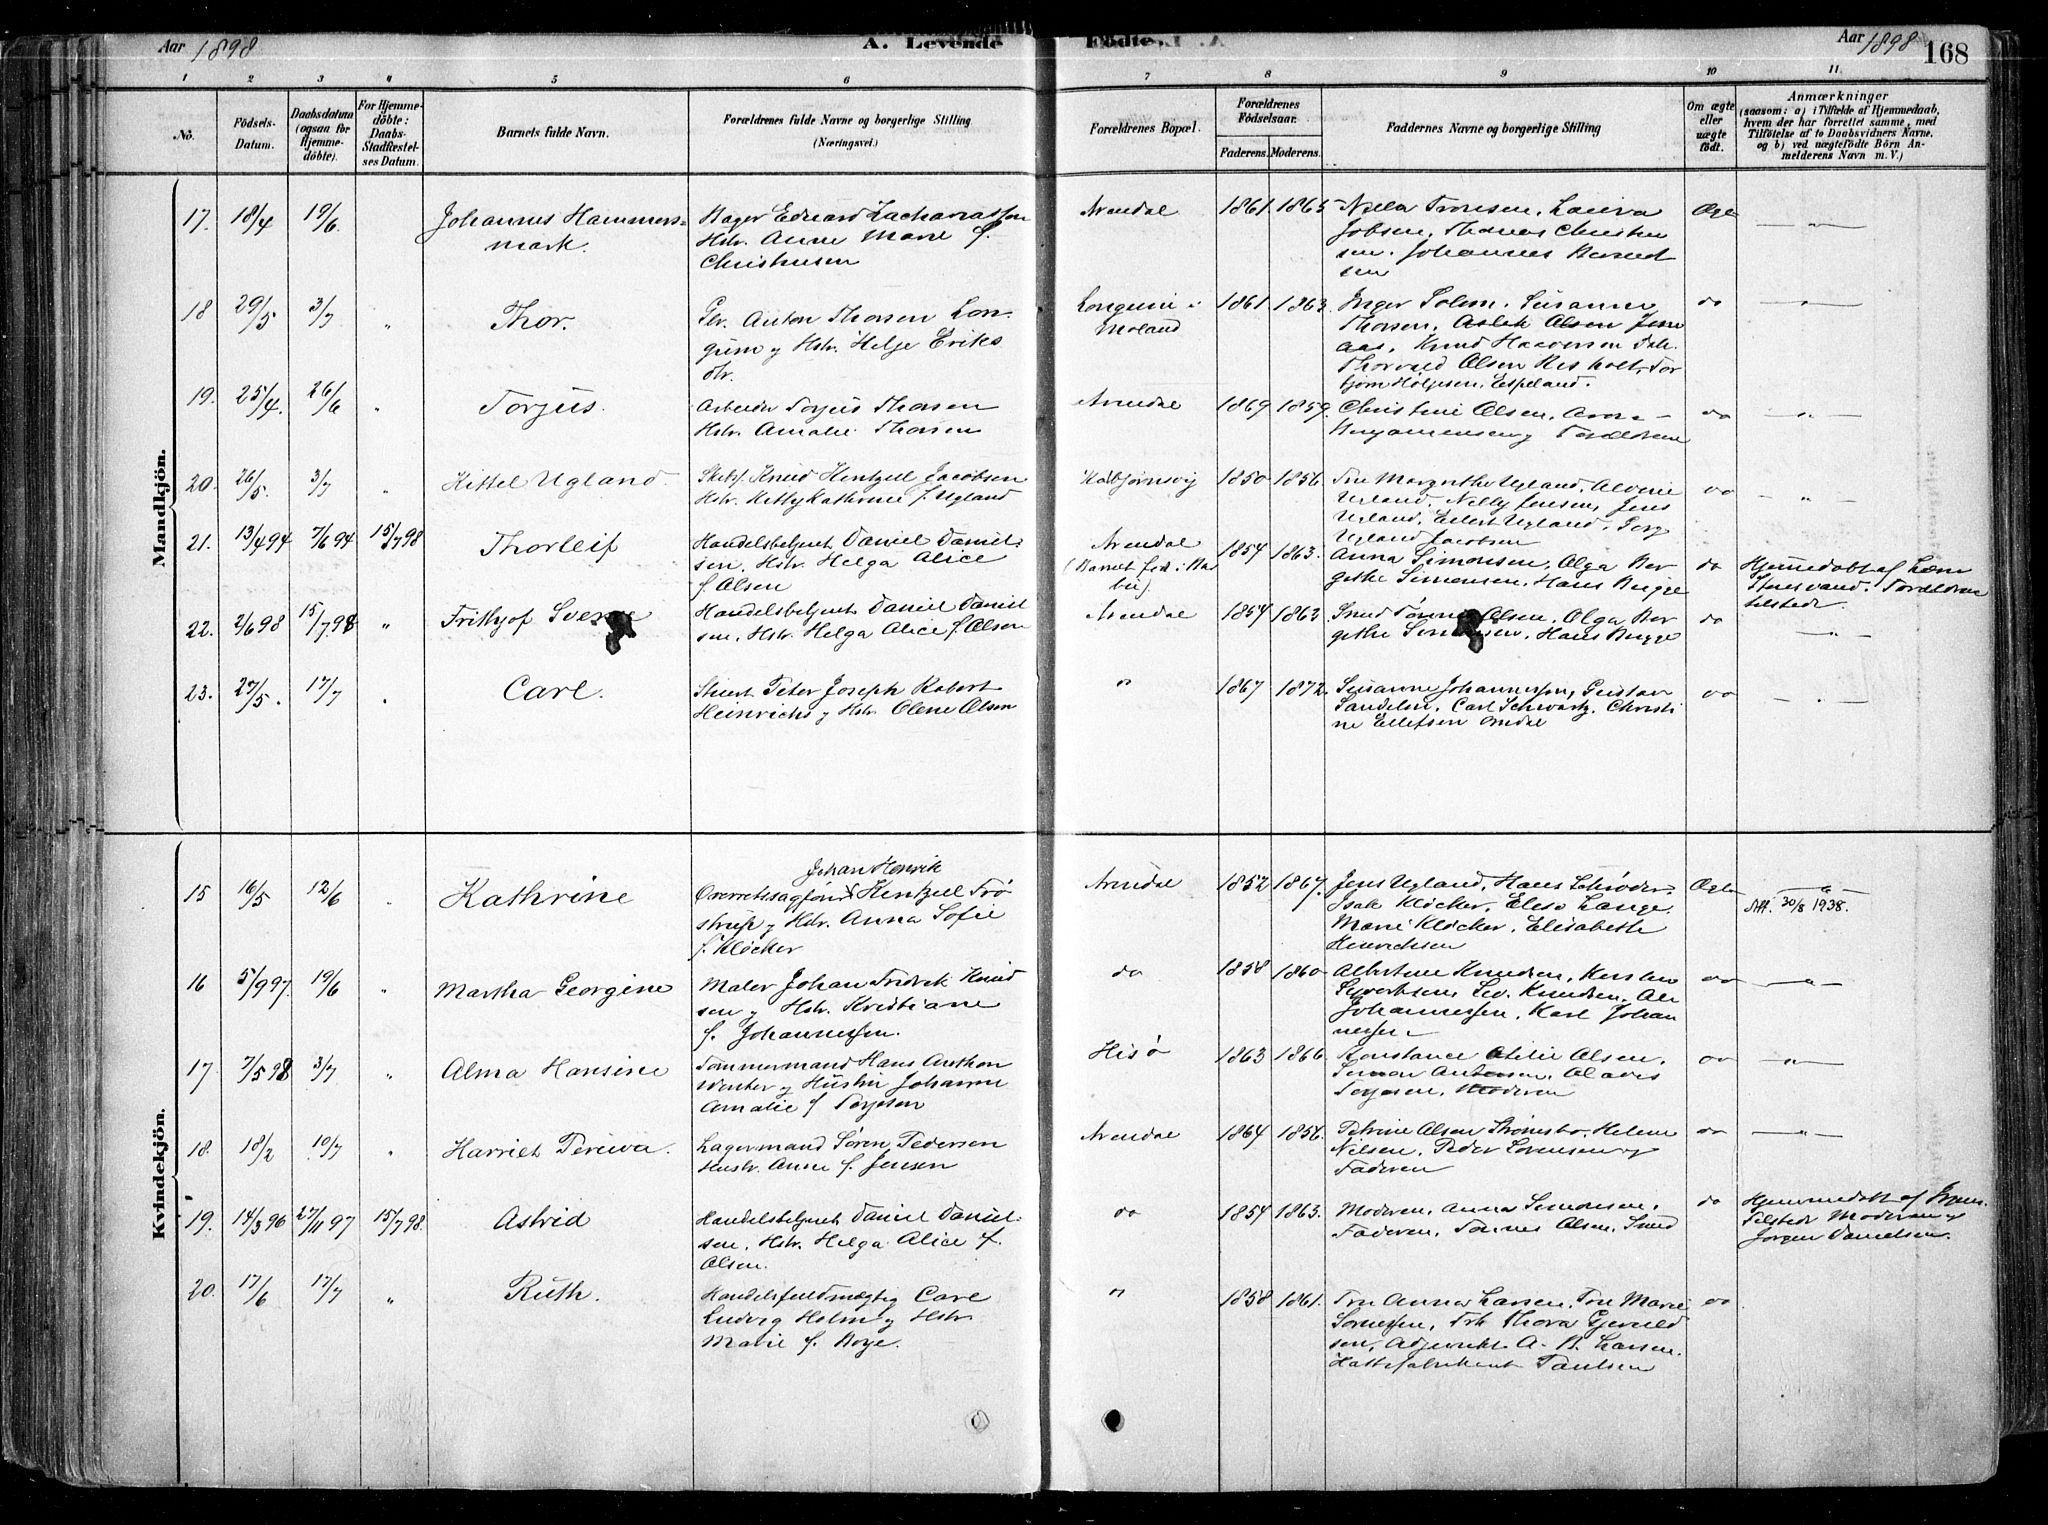 Aar 1898
A. Levende
Fødte.
Aar 1898
168
1 2 3 4 5 6 7 8 9 10 11
No.
Födsels-
Datum.
Daabsdatum
(ogsaa for
Hjemme-
döbte).
For Hjemme-
döbte:
Daabs-
Stadfæstel-
ses Datum.
Barnets fulde Navn.
Forældrenes fulde Navne og borgerlige Stilling
(Næringsvei.)
Forældrenes Bopæl.
Forældrenes
Födselsaar.
Faderens. Moderens.
Faddernes Navne og borgerlige Stilling
Om ægte
eller
uægte
födt.
Anmærkninger
(saasom: a) i Tilfælde af Hjemmedaab,
hvem der har forrettet samme, med
Tilföielse af to Daabsvidners Navne.
og b) ved uægtefödte Börn An-
melderens Navn m. V.)
Mandkjön.
17. 18/4 19/6.
Johannes Hammers-
mark.
Bager Eduard Zachariassen
Hstr. Anne Marie f.
Christensen
Arendal
1861. 1865
Laura
Jobsen, Thomas Christen
sen. Johannes Berent
sen
Ægte
18 29/5 3/7 "
Thor.
Anton Thorsen Lon-
gum y Hstr. Helje Eriks
dtr.
Longum i
Moland
1861. 1863.
Inger Solem, Susanne
Thorsen, Aslak Olsen
Knud Haaversen
Thorvald Olsen Resholt, Tor
bjørn Espeland.
do
19. 25/4. 26/6 "
Torjus.
Arbeider Torjus Thorsen
Hstr. Amalie Thorsen
Arendal
1869 1859.
Christine Olsen, Anna
Benjaminsen y Forældrene
do
20. 26/5. 3/7 "
Kittel Ugland.
Knud Hentzell Jacobsen
Hstr. Kitty Kathrine f. Ugland
Kolbjørnsvig
1850 1856
Fru Margrethe Ugland, Alvine
Ugland, Nelly Jensen, Jens
Ugland, Eilert Ugland,
Ugland Jacobsen
do
21. 13/4 94 7/6 94 15/7 98
Thorleif
Handelsbetjent Daniel Daniel-
sen, Hstr. Helga Alice
f. Olsen
Arendal
(Barnet fød i Bar
bu).
1854 1863.
Anna Simonsen, Olga Ber
gethe Simonsen, Hans Bugge
do
Hjemmedøbt af
Forældrene
tilstede.
22. 2/6 98 15/7 98 "
Frithjof Sverre
Handelsbetjent Daniel Daniel
sen, Hstr. Helga Alice f. Olsen
Arendal
1854 1863
Tønnes Olsen, Olga Ber-
gethe Simonsen, Hans Bugge
do
23. 27/5. 17/7
Carl.
Stuert Peter Joseph Robert
Heinrichs y Hstr. Olene Olsen
"
1867 1872.
Susanne Johannessen, Gustav
Sandelin, Carl Schwartz, Christi
ne Ellefsen Omdal
do
Kvindekjön.
15 16/5 12/6 "
Kathrine
Johan Henrik
Overretssagfører Hentzell Trø
strup y Hstr. Anna Sofie
f. Kløcker
Arendal
1852 1867.
Jens Ugland, Hans Schrøder,
Isak Kløcker, Elise Lange,
Marie Kløcker, Elisabeth
Henrichsen
Ægte
Att. 30/8 1938.
16 5/9 97. 19/6 "
Martha Georgine
Maler Johan Fredrik Knud
sen y Hstr. Kristiane
f. Johannessen.
do
1858 1860
Albertine Knudsen, Kirsten
Syvertsen, Knudsen,
Johannessen, Karl Johan
nessen
do
17 7/5 98 3/7 "
Alma Hansine
Tømmermand Hans Anthon
Winter y Hustru Johanne
Amalie f. Torjesen
Hisø
1863 1866
Konstance Otilie Olsen,
Simon Antonsen, Olavis
Torjesen, Moderen
do
18. 18/2 10/7 "
Harriet
Lagermand Søren Pedersen
Hustr. Anne f. Jensen
Arendal
1864 1856.
Petrine Olsen Helene
Nilsen, Peder Lorensen og
Faderen
do
19. 14/3 96 27/11 97 15/7 98.
Astrid
Handelsbetjent Daniel Daniel-
sen, Hstr. Helga Alice f.
Olsen.
do
1854 1863.
Moderen, Anna Simonsen,
Faderen, Tønnes Olsen,
do
Hjemmedøbt af
Tilstede Moderen og
Jørgen Danielsen.
20. 17/6 17/7 "
Ruth.
Handelsfuldmægtig Carl
Ludvig Holm y Hstr.
Marie f. Boye.
"
1858 1861.
Fru Anna Larsen, Fru Marie
Sørnessen, Frk Thora Gjeruld
sen, Adjunkt A. B. Larsen.
Hattefabrikant Paulsen
do